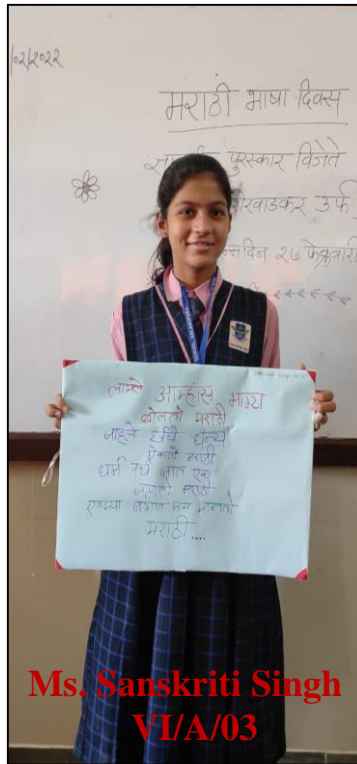 /०२/२०२२
मराठी भाषा दिवस
पुरस्कार विजेते
रवाडकर उर्फ
न्मदिन २७ फेब्रुवारी
लाभले आम्हांस भाग्य
बोलतो मराठी
जाहले खरेच धन्य
ऐकतो मराठी
धर्म पंथ जात एक
जाणतो मराठी
एवढ्या जगात माय मानतो
मराठी....
Ms. Sanskriti Singh
VI/A/03